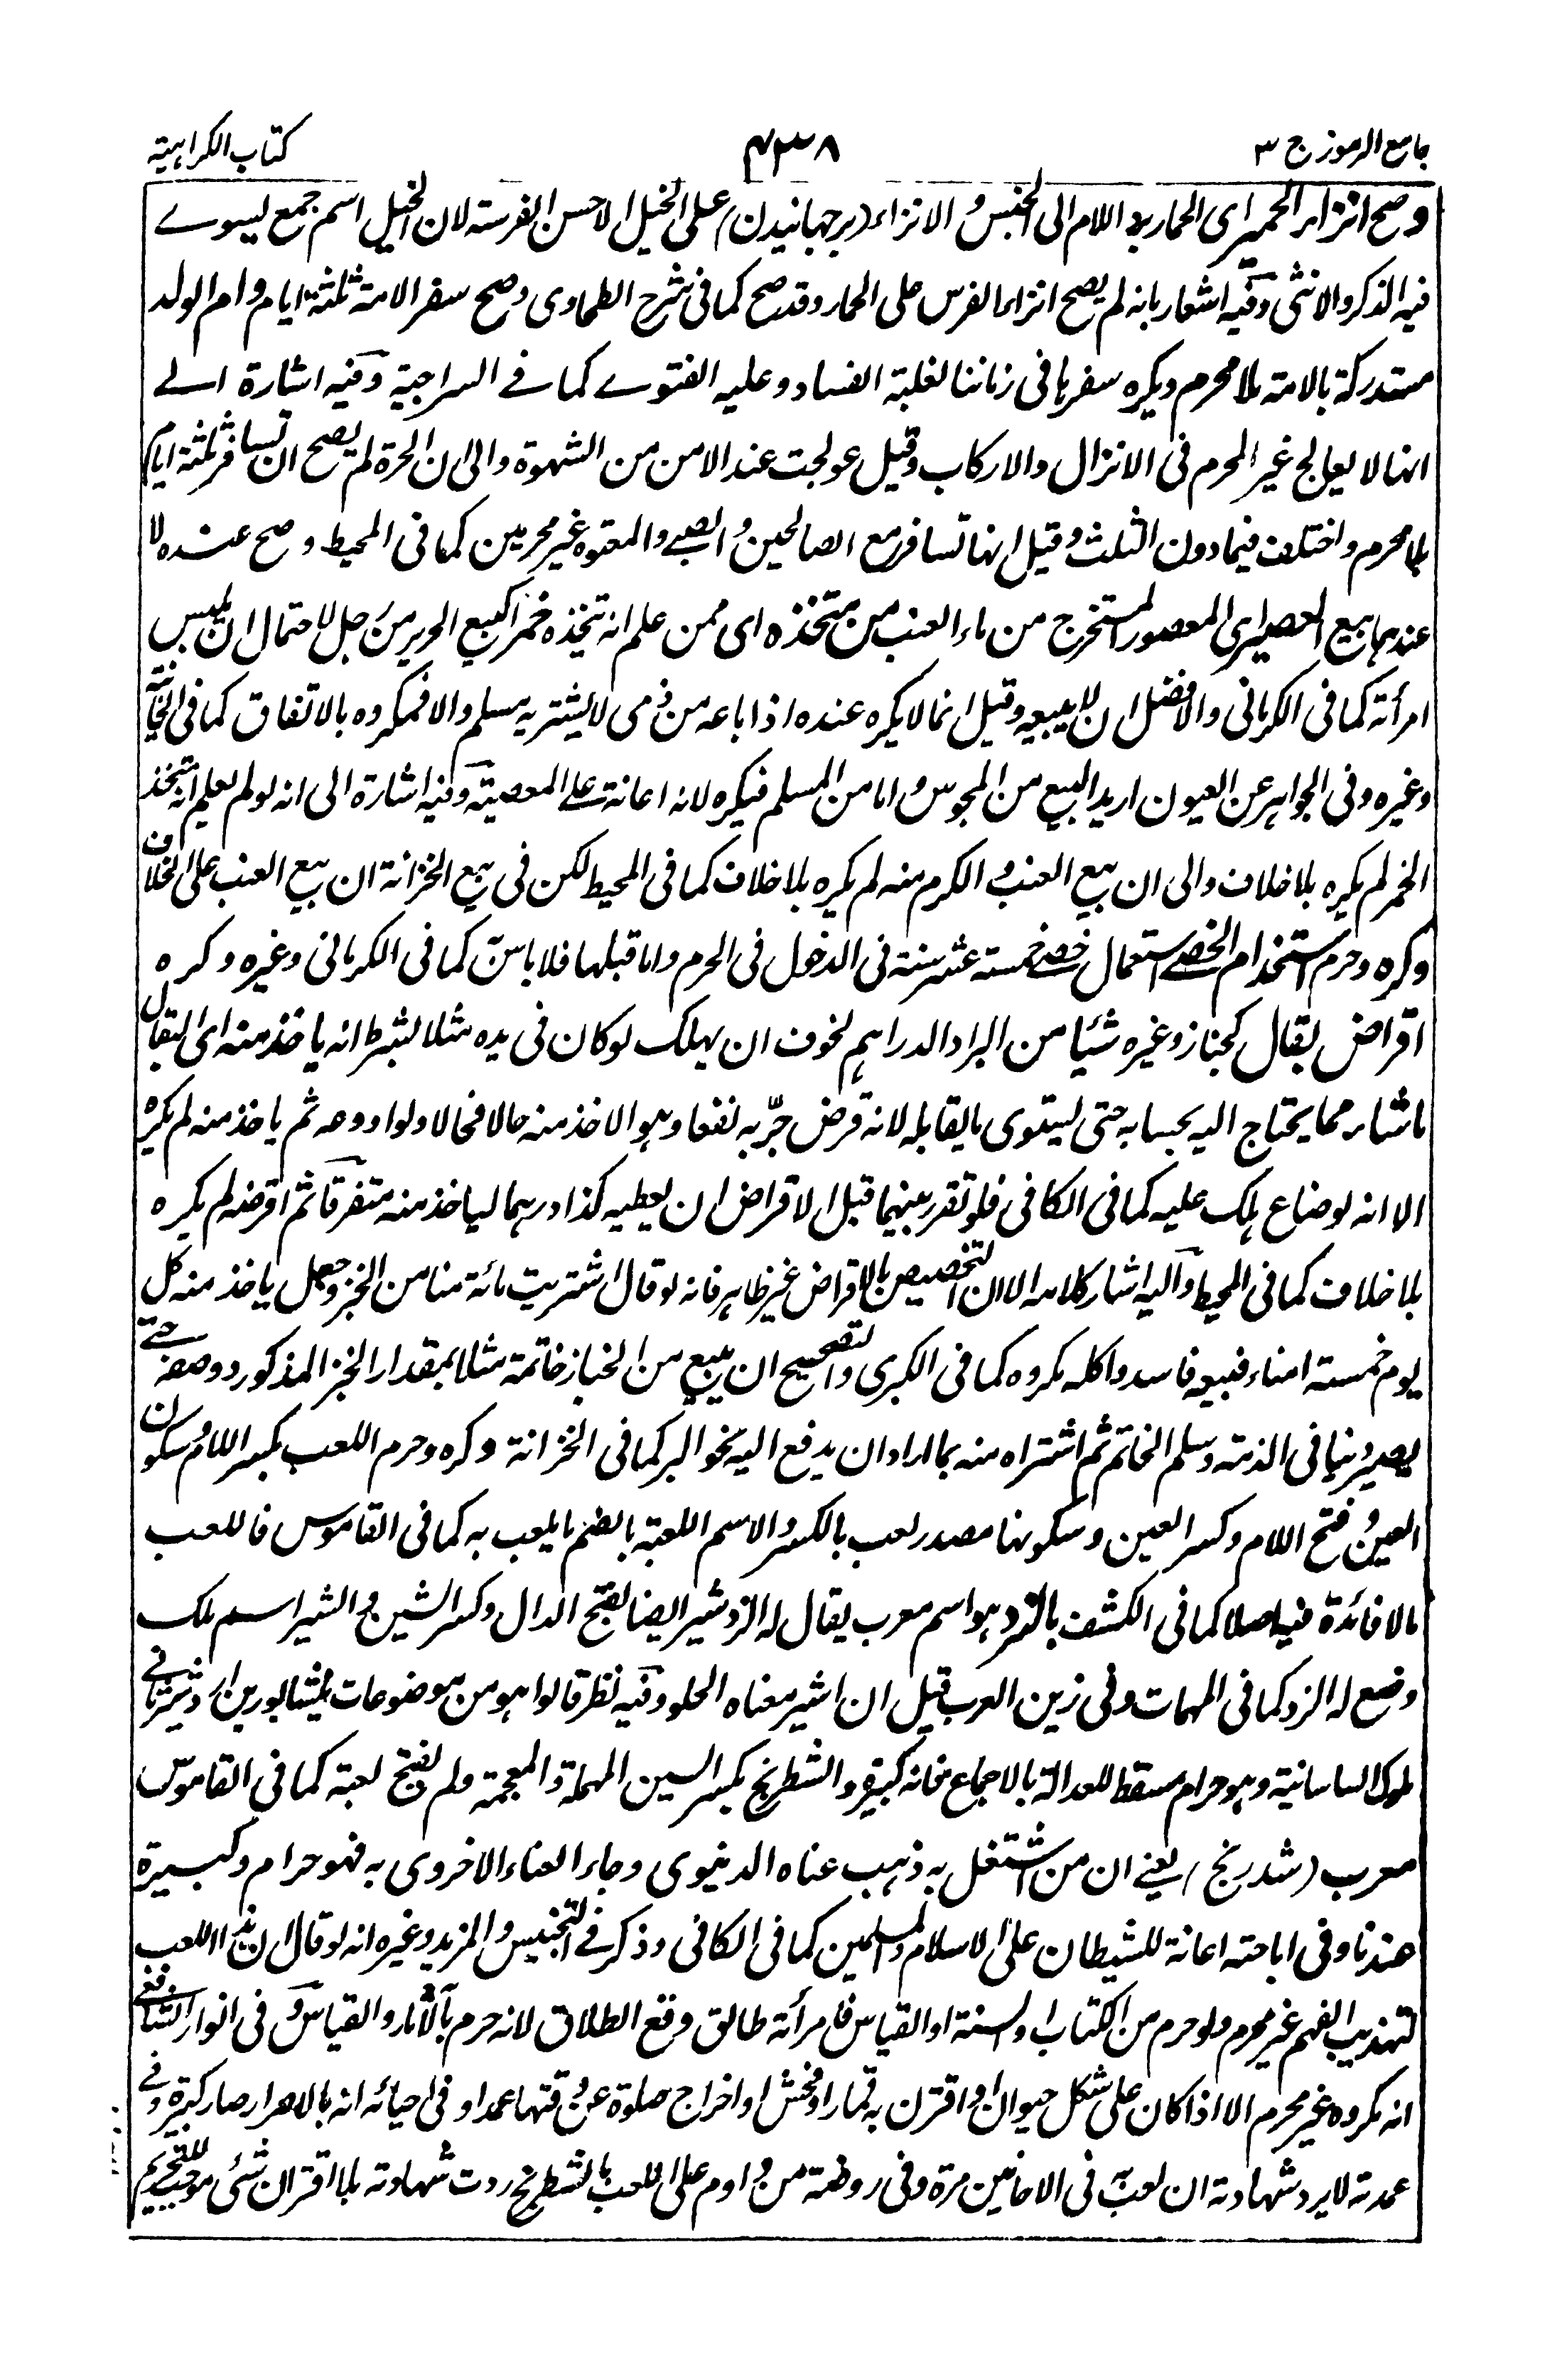 جامع الرموز ج ٣
٤٣٨
كتاب الكراهية
وصح انزاء الحمير اى الحمار برد اللام الى الجنس والانزاء (برجهانيدن) على الخيل الاحسن الفرسة لان الخيل اسم جمع يسوے
فيه الذكر والانثى وفيه اشعار بانه لم يصح انزاء الفرس على الحمار وقد صح كما فى شرح الطحاوى وصح سفر الامة ثلثة ايام وام الولد
مستدركة بالامة بلا محرم ويكره سفرها فى زماننا لغلبة الفساد وعليه الفتوے كما فے السراجية وفيه اشارة الے
انها لا يعالج غير المحرم فى الانزال والاركاب وقيل عولجت عند الامن من الشهوة والى ان الحرة لم يصح ان تسافر ثلثة ايام
بلا محرم واختلف فيما دون الثلث وقيل انها تسافر مع الصالحين والصبے والمعتوه غير محرمين كما فى المحيط وصح عنده لا
عندهما بيع العصير اى المعصور المستخرج من ماء العنب من متخذه اى ممن علم انه تيخذه خمرا كبيع الحرير من رجل لاحتمال ان يلبس
امرأته كما فى الكرمانى والافضل ان لا يبيعه وقيل انما لا يكره عنده اذا باعه من ذمى لا يشتريه مسلم والا فمكروه بالاتفاق كما فى الخانية
وغيره وفى الجواهر عن العيون اريد البيع من المجوس واما من المسلم فيكره لانه اعانة علے المعصية وفيه اشارة الى انه لو لم يعلم انه يتخذ
الخمر لم يكره بلا خلاف والى ان بيع العنب والكرم منه لم يكره بلا خلاف كما فى المحيط لكن فى بيع الخزانة ان بيع العنب على الخلاف
وكره وحرم استخدام الخصے استعمال خصے خمسة عشر سنة فى الدخول فى الحرم واما قبلها فلا باس كما فى الكرمانى وغيره وكره
اقراض بقال كخباز وغيره شيئا من البر او الدراهم لخوف ان يهلك لو كان فى يده مثلا بشرط انه ياخذ منه اى البقال
ما شاء مما يحتاج اليه بحسابه حتى يستوى ما يقابله لانه قرض جرّ به نفعا وهو الاخذ منه حالا فحالا ولو اودعه ثم ياخذ منه لم يكره
الا انه لو ضاع هلك عليه كما فى الكافى فلو تقرر بينهما قبل الاقراض ان يعطيه كذا درهما لياخذ منه متفرقا ثم اقرضه لم يكره
بلا خلاف كما فى المحيط واليه اشار كلامه الا ان التخصيص بالاقراض غير ظاهر فانه لو قال اشتريت مائة منا من الخبز وجعل ياخذ منه كل
يوم خمسة امناء فبيعه فاسد واكله مكروه كما فى الكبرى والتصحيح ان يبيع من الخباز خاتمة مثلا بمقدار الخبز المذكور ووصفه حتے
يصير دينا فى الذمة وسلم الخاتم ثم اشتراه منه بما اراد ان يدفع اليه نحو البر كما فى الخزانة وكره وحرم اللعب بكسر اللام وسكون
العين وفتح اللام وكسر العين وسكونها مصدر لعب بالكسر والاسم اللعبة بالضم ما يلعب به كما فى القاموس فاللعب
ما لا فائدة فيه اصلا كما فى الكشف بالنرد هو اسم معرب يقال له النردشير ايضا بفتح الدال وكسر الشين والشير اسم ملك
وضع له النرد كما فى المهمات وفى زين العرب قيل ان الشير معناه الحلو وفيه نظر قالوا هو من موضوعات شابور بن اردشير ثانے
ملوك الساسانية وهو حرام مسقط للعدالة بالاجماع فانه كبيرة والشطرنج بكسر السين المهملة والمعجمة ولم يفتح لعبة كما فى القاموس
معرب (شدرنج) يعنے ان من اشتغل به ذهب عناه الدنيوى وجاء العناء الاخروى به فهو حرام وكبيرة
عندنا وفى اباحته اعانة للشيطان على الاسلام والمسلمين كما فى الكافى وذكر فے التجنيس والمزيد وغيره انه لو قال ان هذا اللعب
لتهذيب الفهم غير محرم ولو حرم من الكتاب او السنة او القياس فامرأته طالق وقع الطلاق لانه حرم بالآثار والقياس وفى انوار الشافعے
انه مكروه غير محرم الا اذا كان على شكل حيوان او اقترن به قمار او فحش او اخراج صلوة عن وقتها عمدا وفى احيائه انه بالاصرار صار كبيرة وفے
عمدته لا يرد شهادته ان لعب به فى الاحايين مرة وفى روضة من داوم على اللعب بالشطرنج ردت شهادته بلا اقتران شئ موجب للتحريم